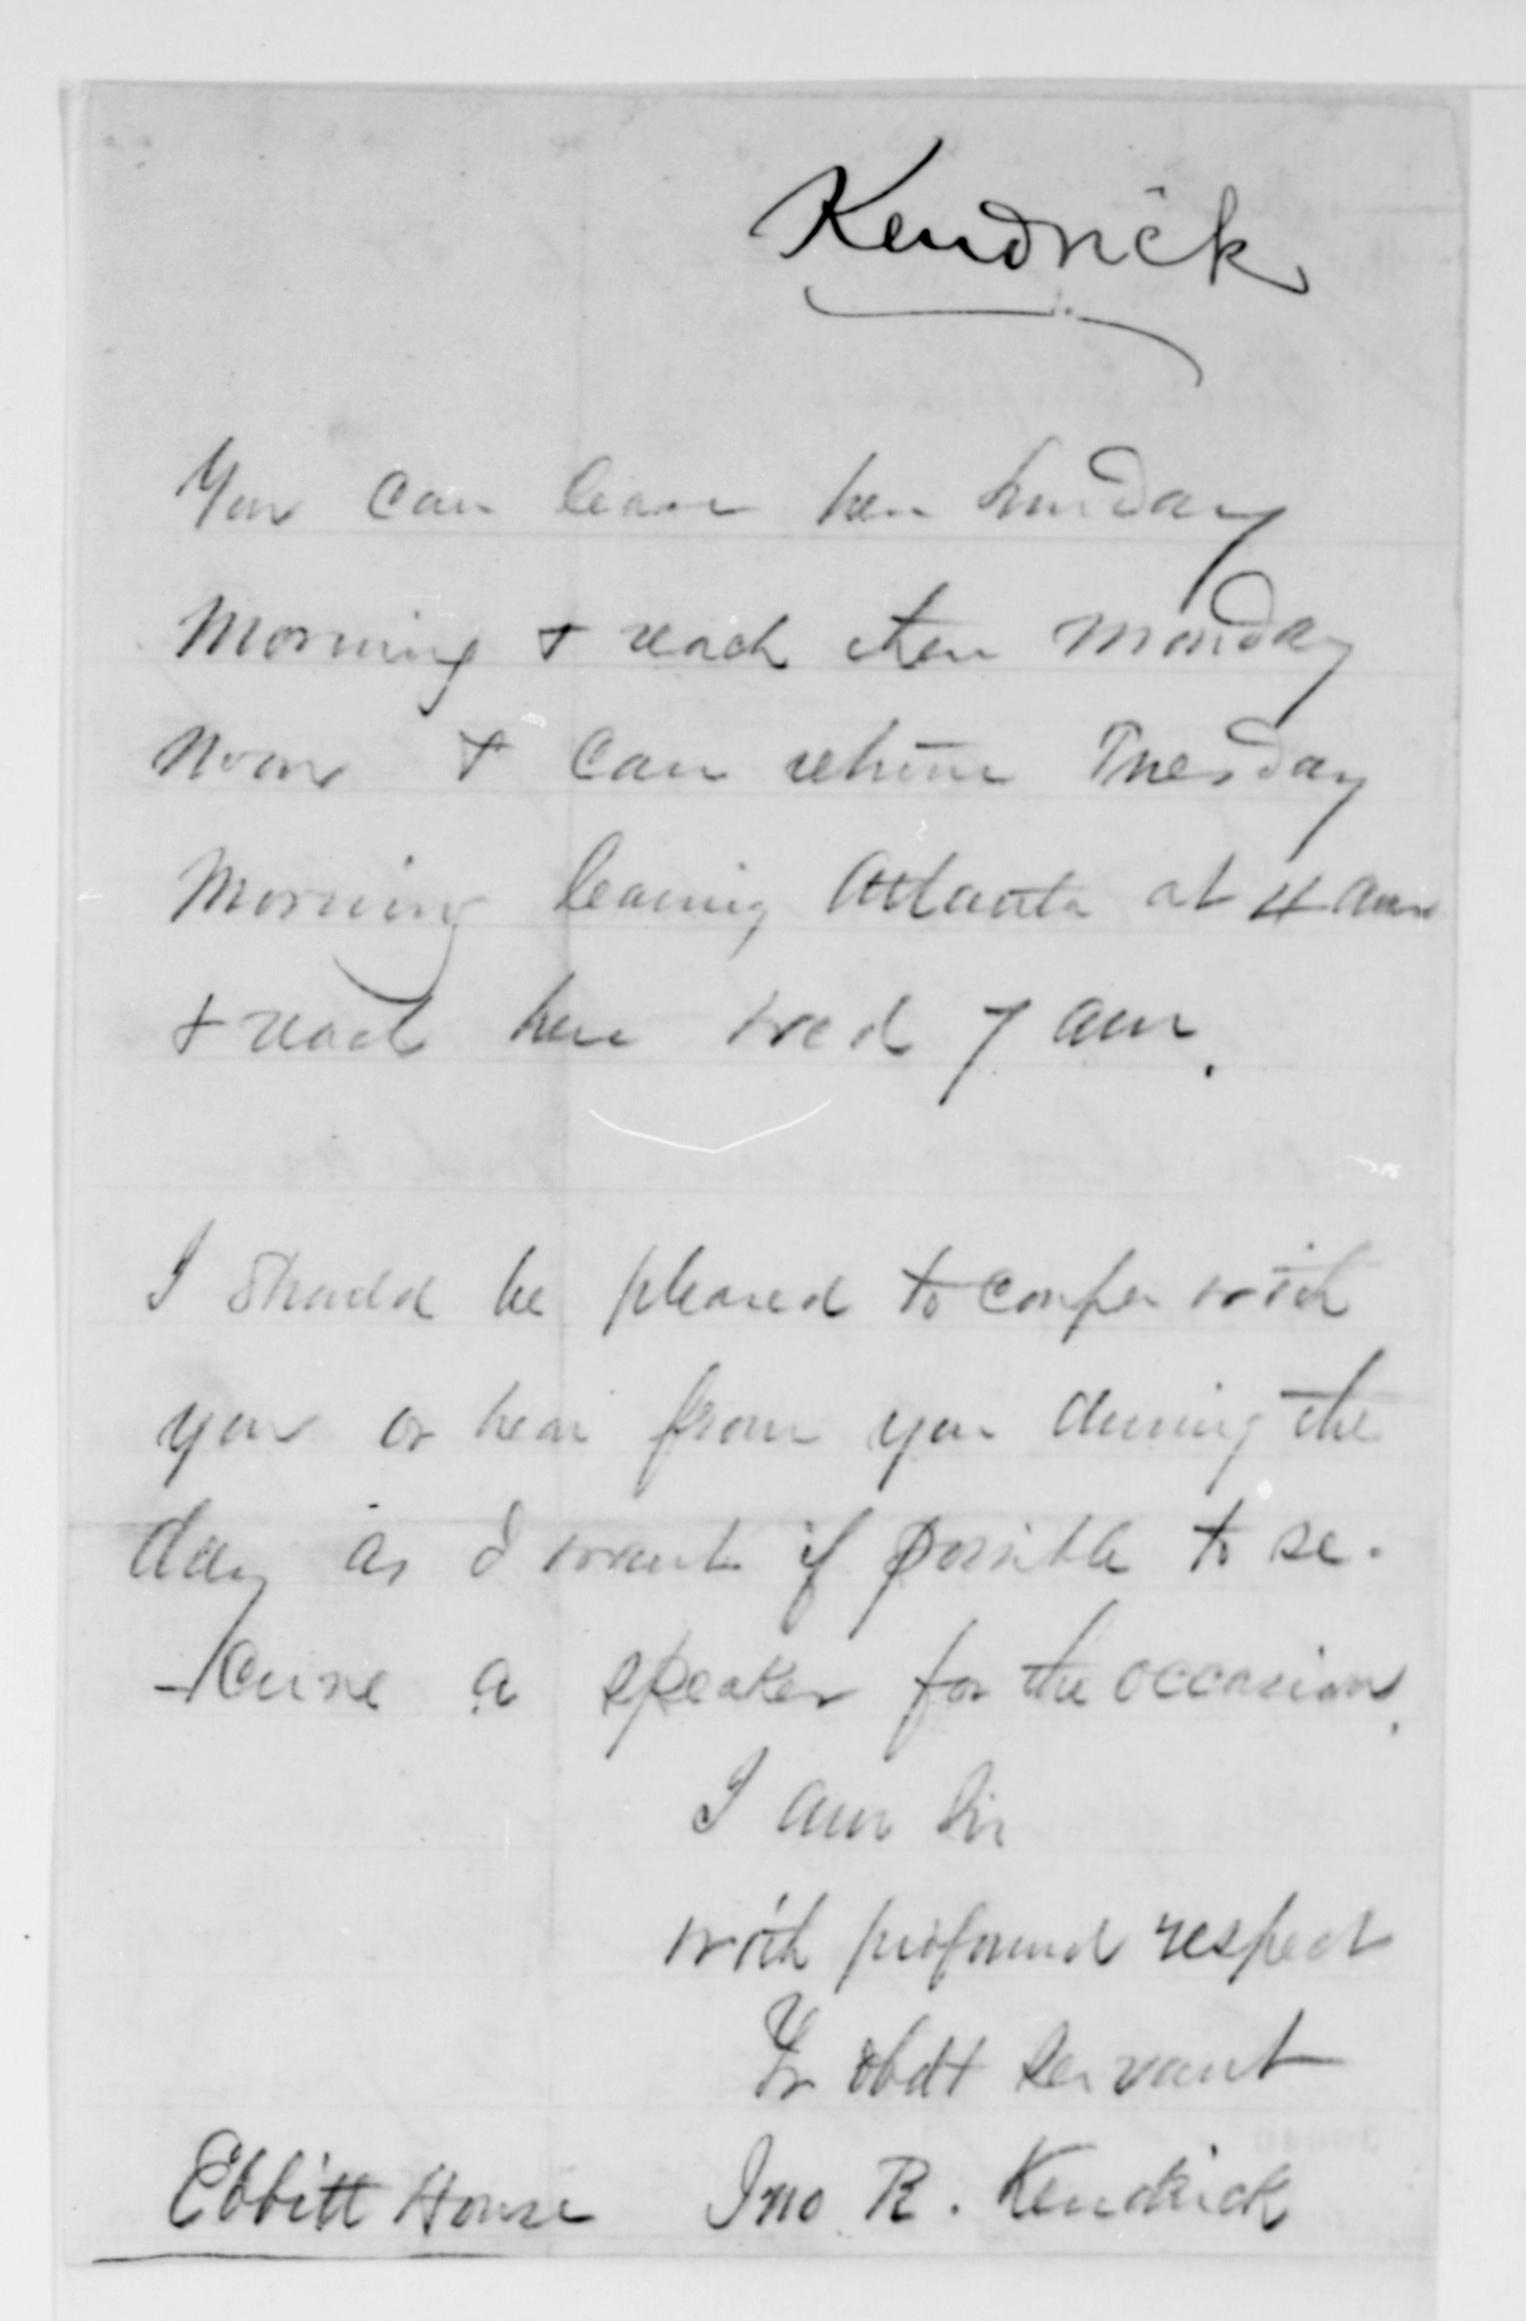 Kendrick
You can leave here Sunday
Morning & reach there Monday
Noon & can return Tuesday
Morning leaving Atlanta at 4 am
& reach here wed 7 am.
I should be pleased to confer with
you or hear from you during the
day as I want if possible to se-
-cure a speaker for the occasion.
I am Sir
with profound respect
Yr obdt servant
Ebbitt House Jno R. Kendrick